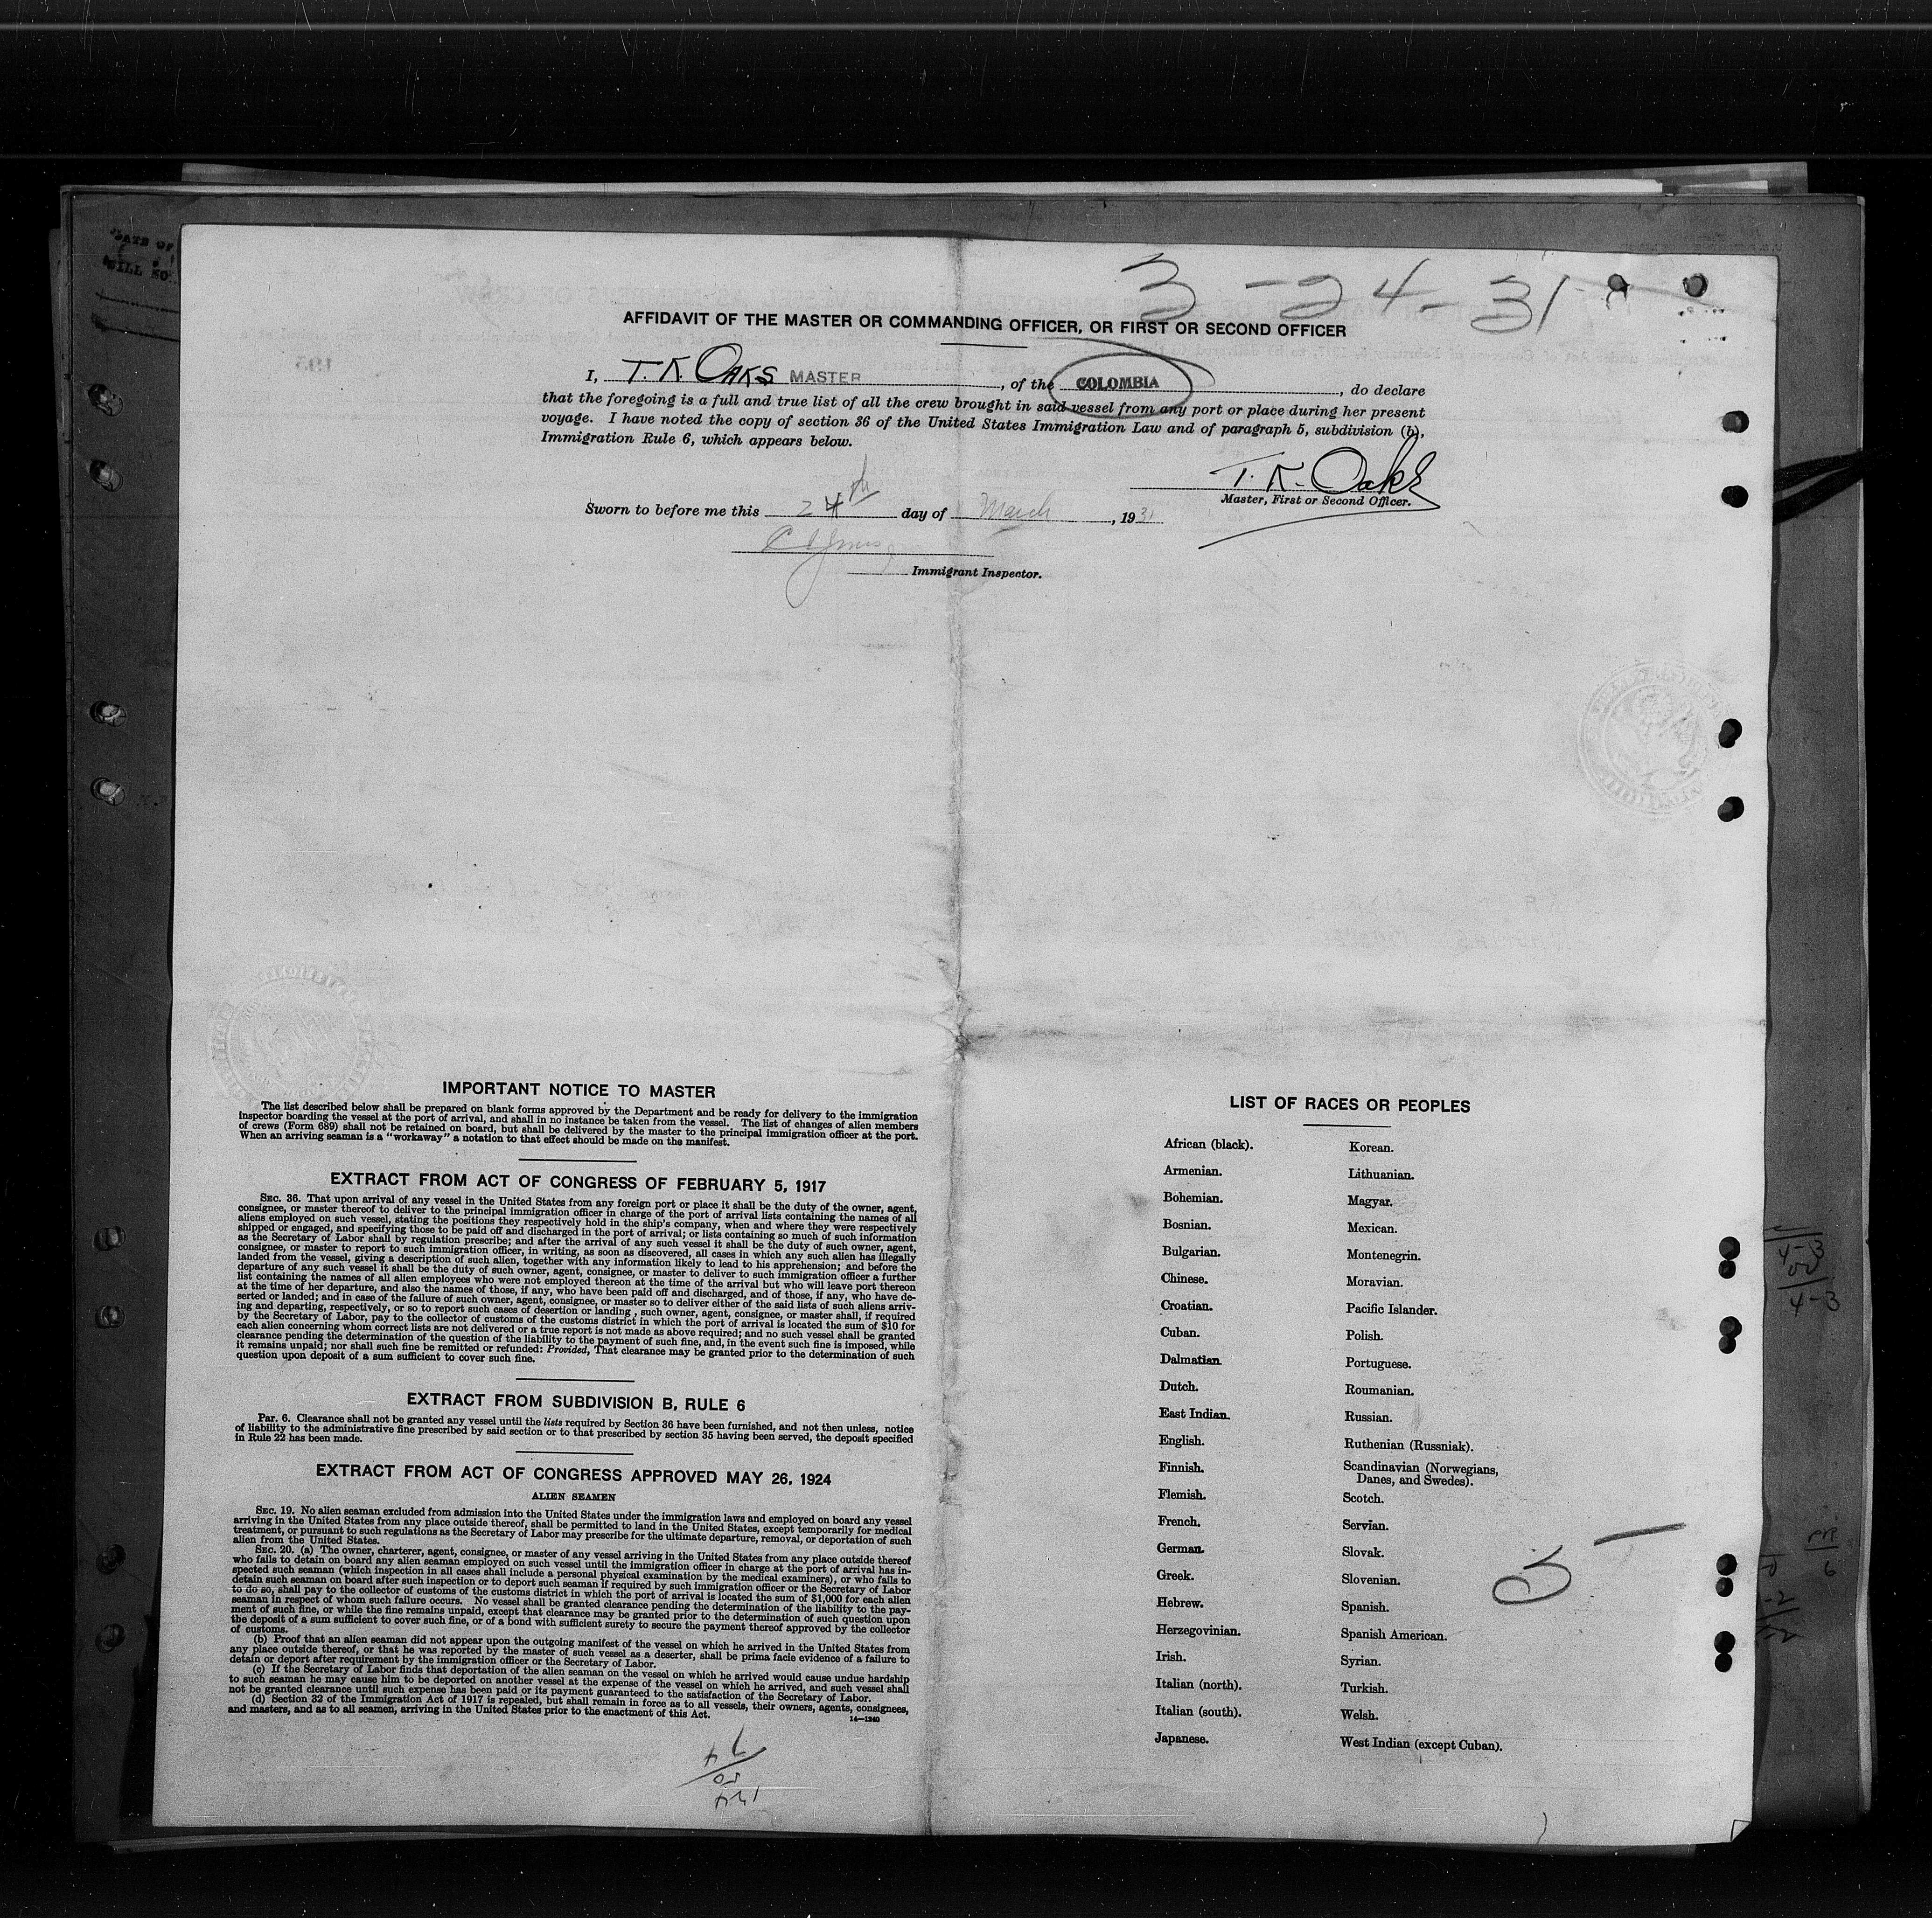 DATE OF
3-24-31
AFFIDAVIT OF THE MASTER OR COMMANDING OFFICER, OR FIRST OR SECOND OFFICER
I, T. K. OAKS MASTER, of the COLOMBIA, do declare
that the foregoing is a full and true list of all the crew brought in said vessel from any port or place during her present
voyage. I have noted the copy of section 36 of the United States Immigration Law and of paragraph 5, subdivision (b),
Immigration Rule 6, which appears below.
T. K. Oaks
Master, First or Second Officer.
Sworn to before me this 24th day of March, 1931
Immigrant Inspector.
IMPORTANT NOTICE TO MASTER
The list described below shall be prepared on blank forms approved by the Department and be ready for delivery to the immigration
inspector boarding the vessel at the port of arrival, and shall in no instance be taken from the vessel. The list of changes of alien members
of crews (Form 689) shall not be retained on board, but shall be delivered by the master to the principal immigration officer at the port.
When an arriving seaman is a "workaway" a notation to that effect should be made on the manifest.
EXTRACT FROM ACT OF CONGRESS OF FEBRUARY 5, 1917
SEC. 36. That upon arrival of any vessel in the United States from any foreign port or place it shall be the duty of the owner, agent,
consignee, or master thereof to deliver to the principal immigration officer in charge of the port of arrival lists containing the names of all
aliens employed on such vessel, stating the positions they respectively hold in the ship's company, when and where they were respectively
shipped or engaged, and specifying those to be paid off and discharged in the port of arrival; or lists containing so much of such information
as the Secretary of Labor shall by regulation prescribe; and after the arrival of any such vessel it shall be the duty of such owner, agent,
consignee, or master to report to such immigration officer, in writing, as soon as discovered, all cases in which any such alien has illegally
landed from the vessel, giving a description of such alien, together with any information likely to lead to his apprehension; and before the
departure of any such vessel it shall be the duty of such owner, agent, consignee, or master to deliver to such immigration officer a further
list containing the names of all alien employees who were not employed thereon at the time of the arrival but who will leave port thereon
at the time of her departure, and also the names of those, if any, who have been paid off and discharged, and of those, if any, who have de-
serted or landed; and in case of the failure of such owner, agent, consignee, or master so to deliver either of the said lists of such aliens arriv-
ing and departing, respectively, or so to report such cases of desertion or landing , such owner, agent, consignee, or master shall, if required
by the Secretary of Labor, pay to the collector of customs of the customs district in which the port of arrival is located the sum of $10 for
each alien concerning whom correct lists are not delivered or a true report is not made as above required; and no such vessel shall be granted
clearance pending the determination of the question of the liability to the payment of such fine, and, in the event such fine is imposed, while
it remains unpaid; nor shall such fine be remitted or refunded: Provided, That clearance may be granted prior to the determination of such
question upon deposit of a sum sufficient to cover such fine.
EXTRACT FROM SUBDIVISION B, RULE 6
Par. 6. Clearance shall not be granted any vessel until the lists required by Section 36 have been furnished, and not then unless, notice
of liability to the administrative fine prescribed by said section or to that prescribed by section 35 having been served, the deposit specified
in Rule 22 has been made.
EXTRACT FROM ACT OF CONGRESS APPROVED MAY 26, 1924
ALIEN SEAMEN
SEC. 19. No alien seaman excluded from admission into the United States under the immigration laws and employed on board any vessel
arriving in the United States from any place outside thereof, shall be permitted to land in the United States, except temporarily for medical
treatment, or pursuant to such regulations as the Secretary of Labor may prescribe for the ultimate departure, removal, or deportation of such
alien from the United States.
SEC. 20. (a) The owner, charterer, agent, consignee, or master of any vessel arriving in the United States from any place outside thereof
who fails to detain on board any alien seaman employed on such vessel until the immigration officer in charge at the port of arrival has in-
spected such seaman (which inspection in all cases shall include a personal physical examination by the medical examiners), or who fails to
detain such seaman on board after such inspection or to deport such seaman if required by such immigration officer or the Secretary of Labor
to do so, shall pay to the collector of customs of the customs district in which the port of arrival is located the sum of $1,000 for each alien
seaman in respect of whom such failure occurs. No vessel shall be granted clearance pending the determination of the liability to the pay-
ment of such fine, or while the fine remains unpaid, except that clearance may be granted prior to the determination of such question upon
the deposit of a sum sufficient to cover such fine, or of a bond with sufficient surety to secure the payment thereof approved by the collector
of customs.
(b) Proof that an alien seaman did not appear upon the outgoing manifest of the vessel on which he arrived in the United States from
any place outside thereof, or that he was reported by the master of such vessel as a deserter, shall be prima facie evidence of a failure to
detain or deport after requirement by the immigration officer or the Secretary of Labor.
(c) If the Secretary of Labor finds that deportation of the alien seaman on the vessel on which he arrived would cause undue hardship
to such seaman he may cause him to be deported on another vessel at the expense of the vessel on which he arrived, and such vessel shall
not be granted clearance until such expense has been paid or its payment guaranteed to the satisfaction of the Secretary of Labor.
(d) Section 32 of the Immigration Act of 1917 is repealed, but shall remain in force as to all vessels, their owners, agents, consignees,
and masters, and as to all seamen, arriving in the United States prior to the enactment of this Act.
14—1240
LIST OF RACES OR PEOPLES
African (black).
Armenian.
Bohemian.
Bosnian.
Bulgarian.
Chinese.
Croatian.
Cuban.
Dalmatian.
Dutch.
East Indian.
English.
Finnish.
Flemish.
French.
German.
Greek.
Hebrew.
Herzegovinian.
Irish.
Italian (north).
Italian (south).
Japanese.
Korean.
Lithuanian.
Magyar.
Mexican.
Montenegrin.
Moravian.
Pacific Islander.
Polish.
Portuguese.
Roumanian.
Russian.
Ruthenian (Russniak).
Scandinavian (Norwegians,
Danes, and Swedes).
Scotch.
Servian.
Slovak.
Slovenian.
Spanish.
Spanish American.
Syrian.
Turkish.
Welsh.
West Indian (except Cuban).
4-3
4-3